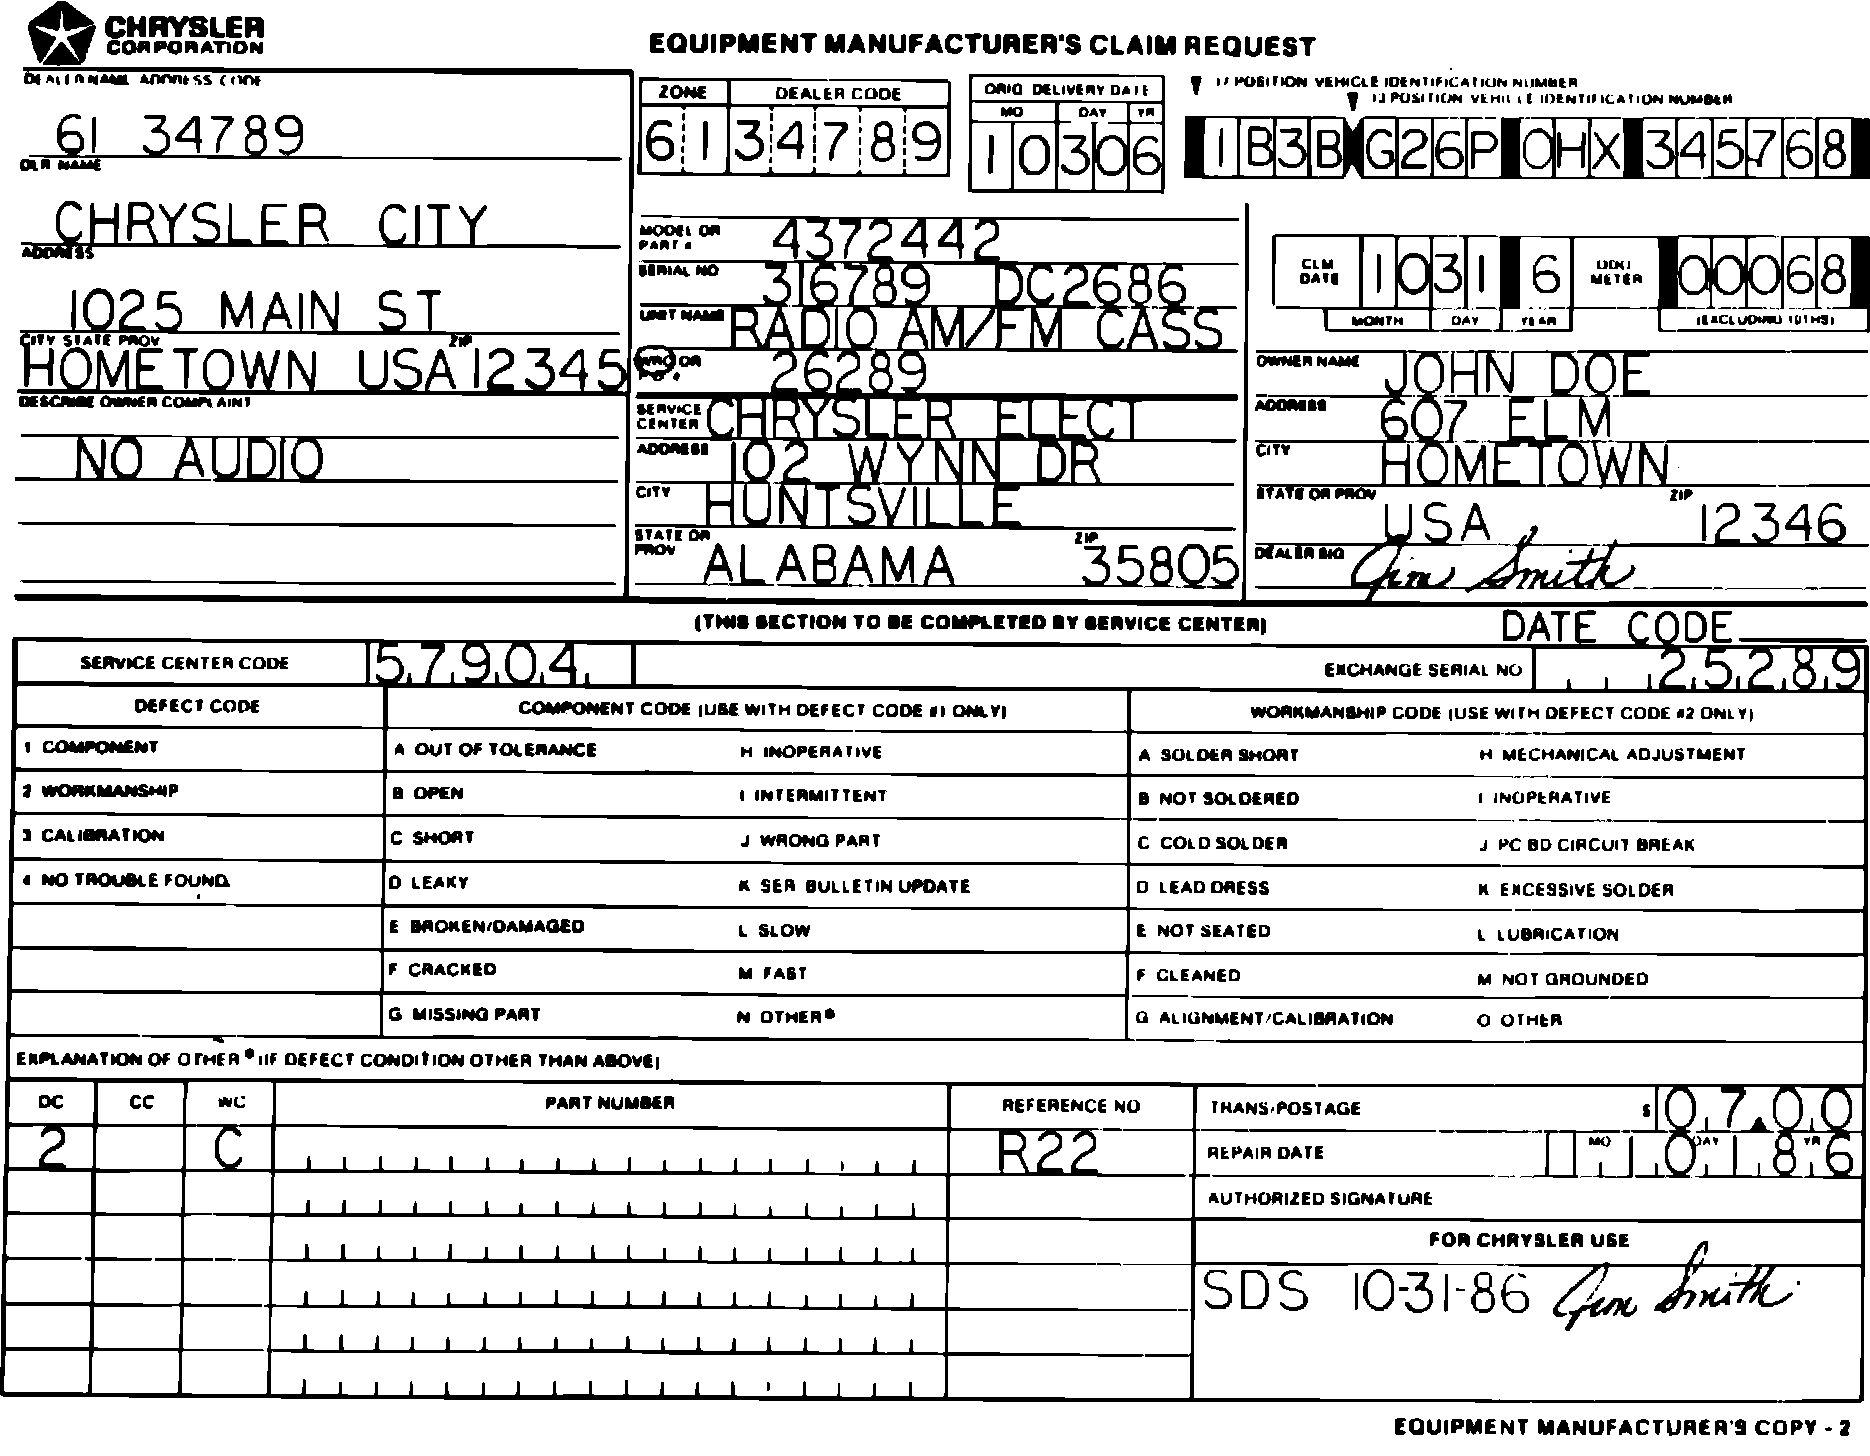 CHRYSLER
CORPORATION
EQUIPMENT MANUFACTURER'S CLAIM REQUEST
DEALER NAME ADDRESS CODE
61 34789
DLR NAME
CHRYSLER CITY
ADDRESS
1025 MAIN ST
CITY STATE PROV ZIP
HOMETOWN USA 12345
DESCRIBE OWNER COMPLAINT
NO AUDIO
ZONE DEALER CODE
61 34789
ORIG DELIVERY DATE
MO DAY YR
10 30 6
17 POSITION VEHICLE IDENTIFICATION NUMBER
13 POSITION VEHICLE IDENTIFICATION NUMBER
1B3B G26P 0HX 345768
MODEL OR PART # 4372442
SERIAL NO 316789 DC2686
UNIT NAME RADIO AM/FM CASS
WRO OR P O # 26289
SERVICE CENTER CHRYSLER ELECT
ADDRESS 102 WYNN DR
CITY HUNTSVILLE
STATE OR PROV ALABAMA ZIP 35805
CLM DATE 1031 6 ODO METER 00068
MONTH DAY YEAR (EXCLUDING 10THS)
OWNER NAME JOHN DOE
ADDRESS 607 ELM
CITY HOMETOWN
STATE OR PROV USA ZIP 12346
DEALER SIG Jim Smith
(THIS SECTION TO BE COMPLETED BY SERVICE CENTER)
DATE CODE
SERVICE CENTER CODE 57904 EXCHANGE SERIAL NO 25289
DEFECT CODE COMPONENT CODE (USE WITH DEFECT CODE #1 ONLY) WORKMANSHIP CODE (USE WITH DEFECT CODE #2 ONLY)
1 COMPONENT A OUT OF TOLERANCE H INOPERATIVE A SOLDER SHORT H MECHANICAL ADJUSTMENT
2 WORKMANSHIP B OPEN I INTERMITTENT B NOT SOLDERED I INOPERATIVE
3 CALIBRATION C SHORT J WRONG PART C COLD SOLDER J PC BD CIRCUIT BREAK
4 NO TROUBLE FOUND D LEAKY K SER BULLETIN UPDATE D LEAD DRESS K EXCESSIVE SOLDER
E BROKEN/DAMAGED L SLOW E NOT SEATED L LUBRICATION
F CRACKED M FAST F CLEANED M NOT GROUNDED
G MISSING PART N OTHER* G ALIGNMENT/CALIBRATION O OTHER
EXPLANATION OF OTHER * (IF DEFECT CONDITION OTHER THAN ABOVE)
DC CC WC PART NUMBER REFERENCE NO TRANS/POSTAGE $ 07.00
2 C R22 REPAIR DATE MO DAY YR 1 10 1 86
AUTHORIZED SIGNATURE
FOR CHRYSLER USE
SDS 10-31-86 Jim Smith
EQUIPMENT MANUFACTURER'S COPY - 2